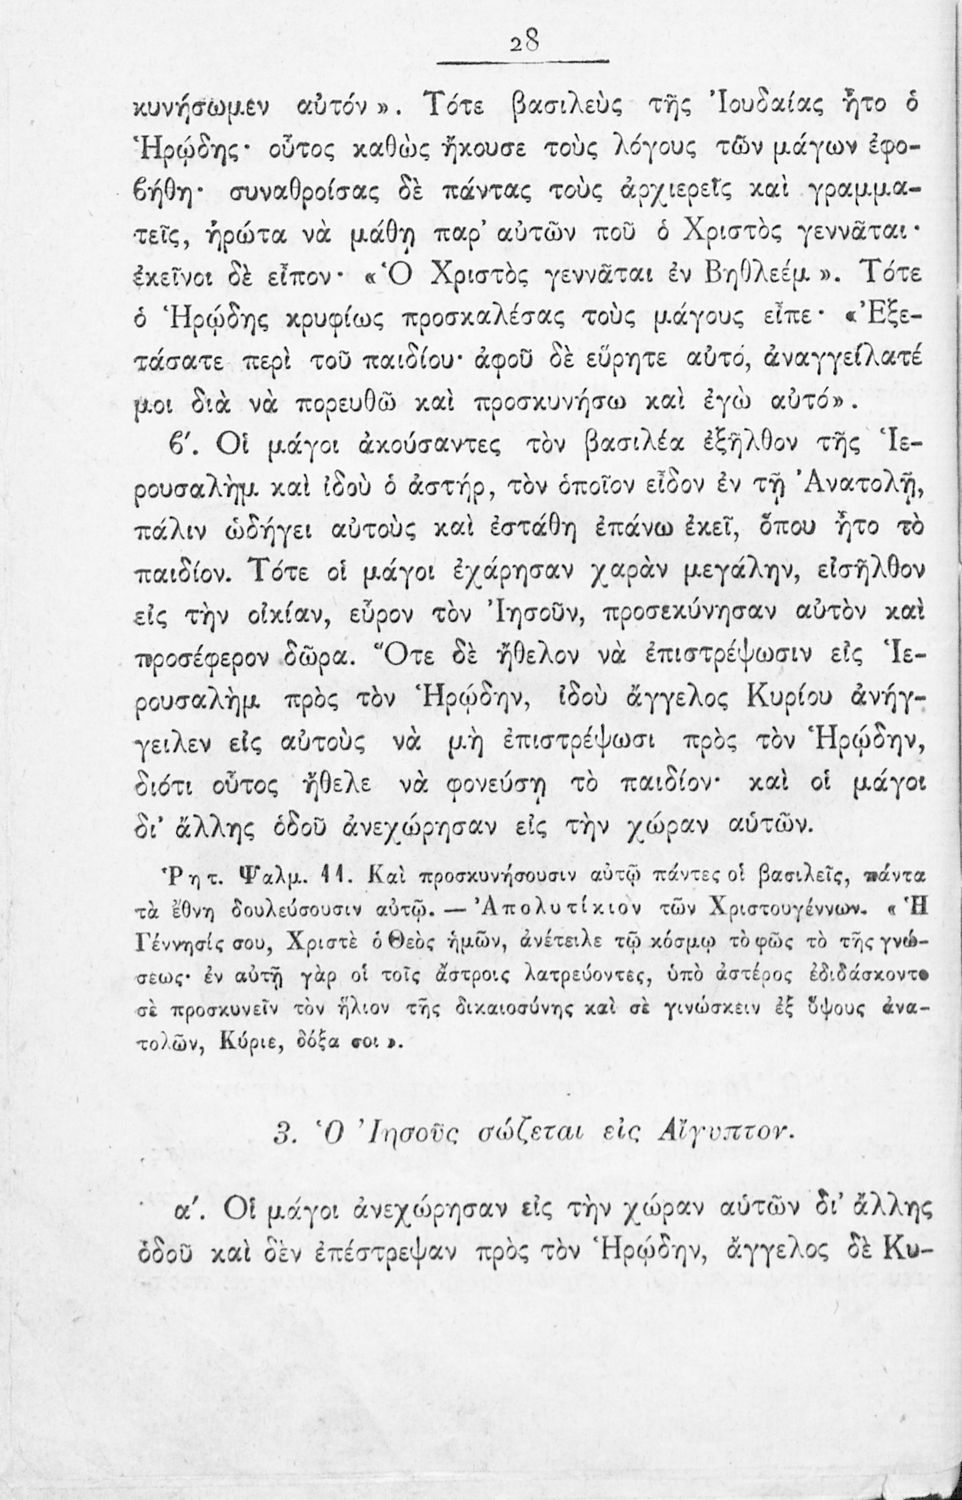 28
κυνήσωμεν αὐτόν ». Τότε βασιλεὺς τῆς Ἰουδαίας ἦτο ὁ
Ἡρῴδης· οὗτος καθὼς ἤκουσε τοὺς λόγους τῶν μάγων ἐφο-
βήθη· συναθροίσας δὲ πάντας τοὺς ἀρχιερεῖς καὶ γραμμα-
τεῖς, ἠρώτα νὰ μάθῃ παρ' αὐτῶν ποῦ ὁ Χριστὸς γεννᾶται·
ἐκεῖνοι δὲ εἶπον· «Ὁ Χριστὸς γεννᾶται ἐν Βηθλεέμ ». Τότε
ὁ Ἡρῴδης κρυφίως προσκαλέσας τοὺς μάγους εἶπε· «Ἐξε-
τάσατε περὶ τοῦ παιδίου· ἀφοῦ δὲ εὕρητε αὐτό, ἀναγγείλατέ
μοι διὰ νὰ πορευθῶ καὶ προσκυνήσω καὶ ἐγὼ αὐτό».
β'. Οἱ μάγοι ἀκούσαντες τὸν βασιλέα ἐξῆλθον τῆς Ἱε-
ρουσαλὴμ καὶ ἰδοὺ ὁ ἀστήρ, τὸν ὁποῖον εἶδον ἐν τῇ Ἀνατολῇ,
πάλιν ὡδήγει αὐτοὺς καὶ ἐστάθη ἐπάνω ἐκεῖ, ὅπου ἦτο τὸ
παιδίον. Τότε οἱ μάγοι ἐχάρησαν χαρὰν μεγάλην, εἰσῆλθον
εἰς τὴν οἰκίαν, εὗρον τὸν Ἰησοῦν, προσεκύνησαν αὐτὸν καὶ
προσέφερον δῶρα. Ὅτε δὲ ἤθελον νὰ ἐπιστρέψωσιν εἰς Ἱε-
ρουσαλὴμ πρὸς τὸν Ἡρῴδην, ἰδοὺ ἄγγελος Κυρίου ἀνήγ-
γειλεν εἰς αὐτοὺς νὰ μὴ ἐπιστρέψωσι πρὸς τὸν Ἡρῴδην,
διότι οὗτος ἤθελε νὰ φονεύσῃ τὸ παιδίον· καὶ οἱ μάγοι
δι' ἄλλης ὁδοῦ ἀνεχώρησαν εἰς τὴν χώραν αὑτῶν.
Ῥητ. Ψαλμ. 11. Καὶ προσκυνήσουσιν αὐτῷ πάντες οἱ βασιλεῖς, πάντα
τὰ ἔθνη δουλεύσουσιν αὐτῷ. — Ἀπολυτίκιον τῶν Χριστουγέννων. «Ἡ
Γέννησίς σου, Χριστὲ ὁ Θεὸς ἡμῶν, ἀνέτειλε τῷ κόσμῳ τὸ φῶς τὸ τῆς γνώ-
σεως· ἐν αὐτῇ γὰρ οἱ τοῖς ἄστροις λατρεύοντες, ὑπὸ ἀστέρος ἐδιδάσκοντο
σὲ προσκυνεῖν τὸν ἥλιον τῆς δικαιοσύνης καὶ σὲ γινώσκειν ἐξ ὕψους ἀνα-
τολῶν, Κύριε, δόξα σοι ».
3. Ὁ Ἰησοῦς σώζεται εἰς Αἴγυπτον.
α'. Οἱ μάγοι ἀνεχώρησαν εἰς τὴν χώραν αὑτῶν δι' ἄλλης
ὁδοῦ καὶ δὲν ἐπέστρεψαν πρὸς τὸν Ἡρῴδην, ἄγγελος δὲ Κυ-